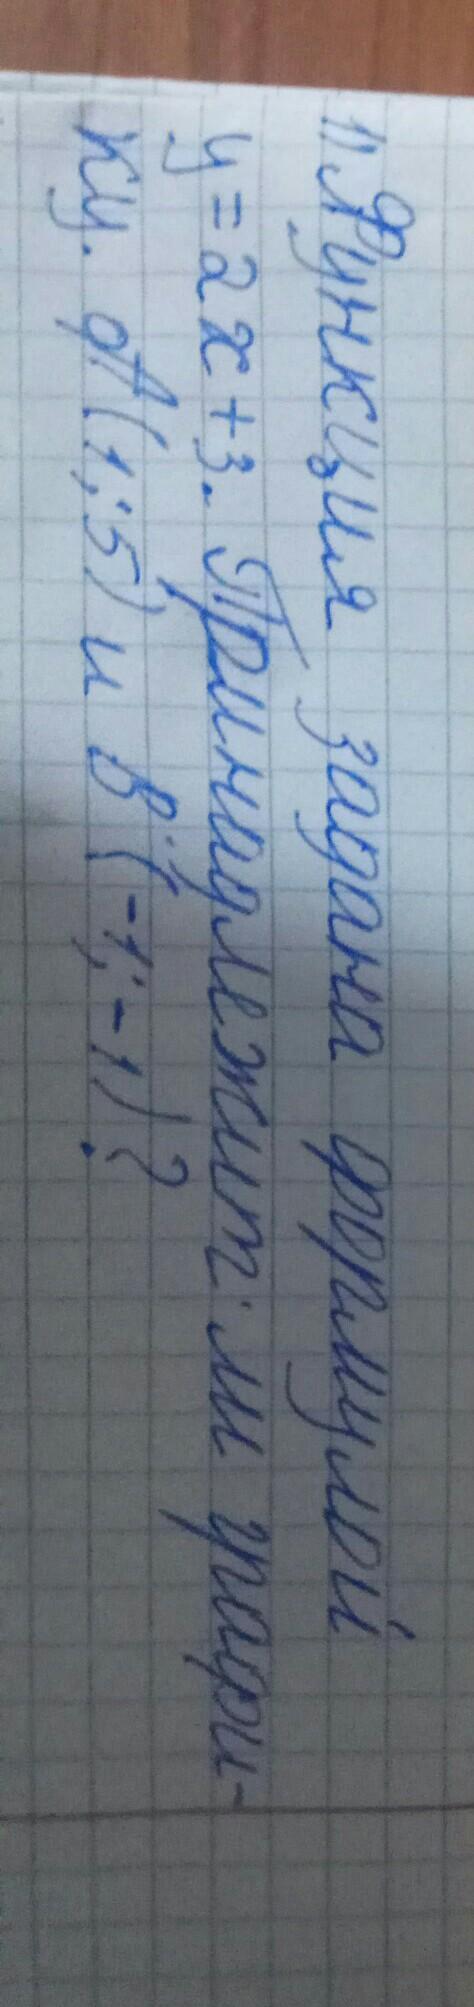 1) Функция задана формулой
y = 2x + 3. Принадлежит ли графи-
ку. A(1; 5) и B(-1; -1)?